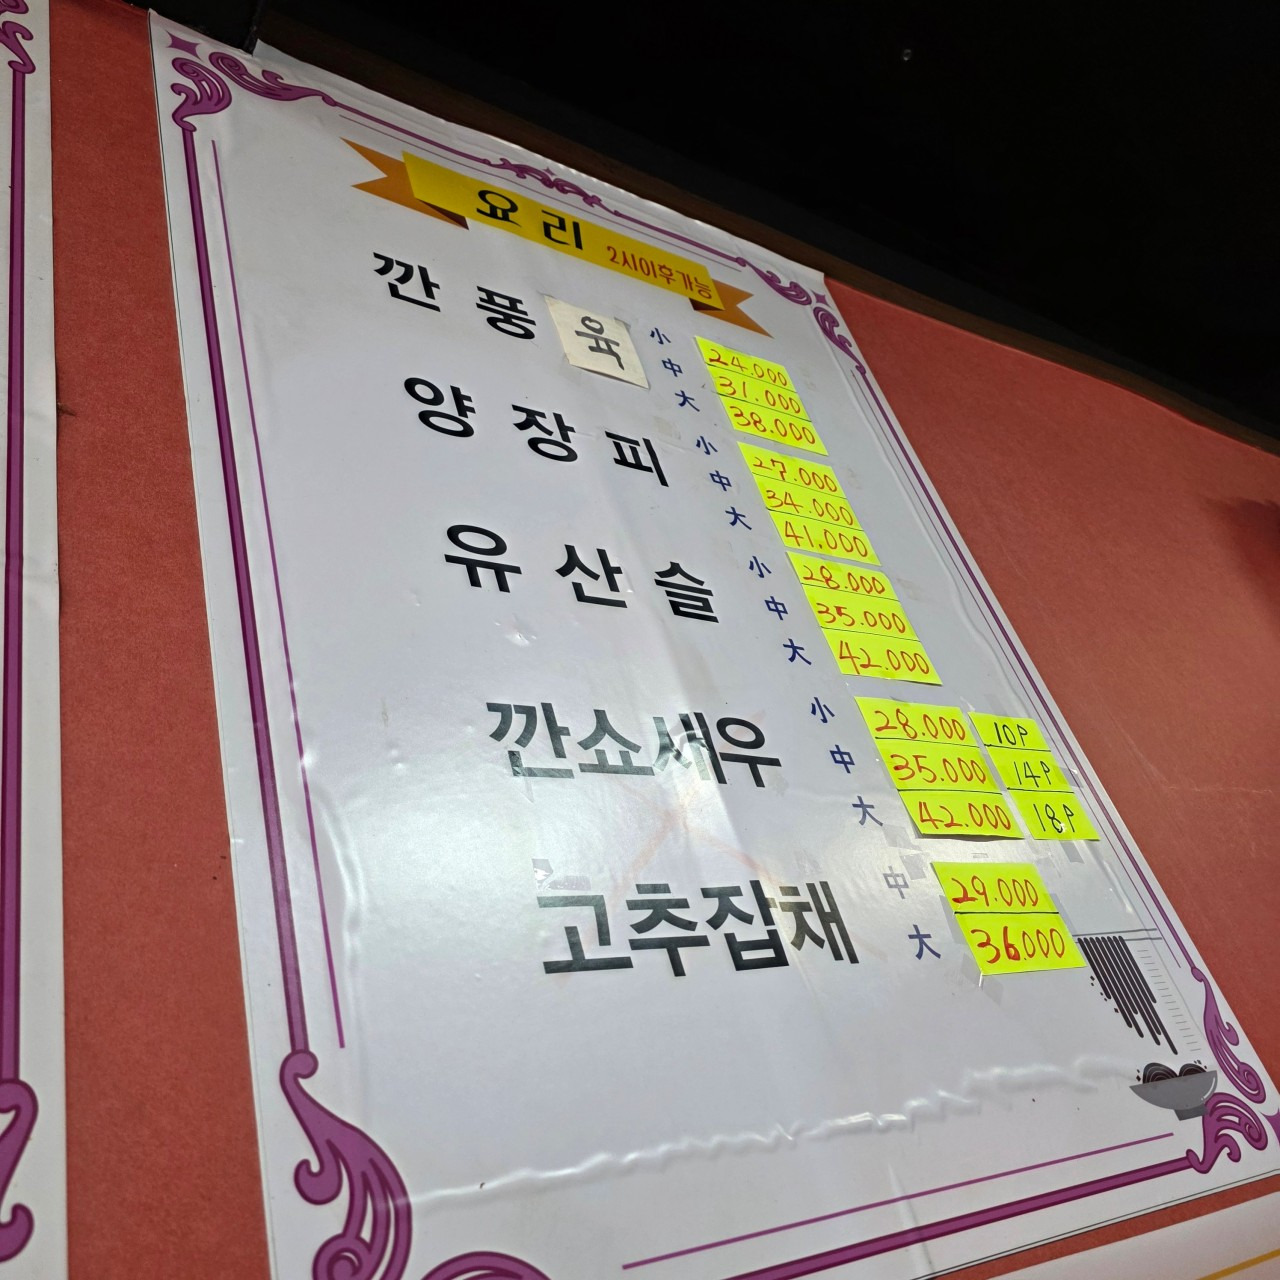 요리 2시이후가능
깐풍육 小 24.000
中 31.000
大 38.000
양장피 小 27.000
中 34.000
大 41.000
유산슬 小 28.000
中 35.000
大 42.000
깐쇼새우 小 28.000 10P
中 35.000 14P
大 42.000 18P
고추잡채 中 29.000
大 36.000